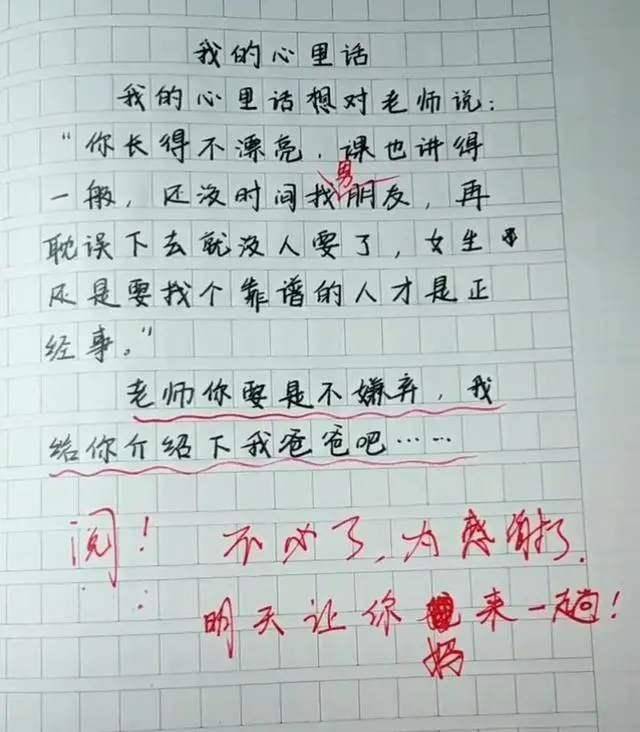 我的心里话
我的心里话想对老师说：
“你长得不漂亮，课也讲得
男
一般，还没时间找朋友，再
耽误下去就没人要了，女生
还是要找个靠谱的人才是正
经事。”
老师你要是不嫌弃，我
给你介绍下我爸爸吧……
阅！ 不必了，太感谢了，
明天让你来一趟！
妈